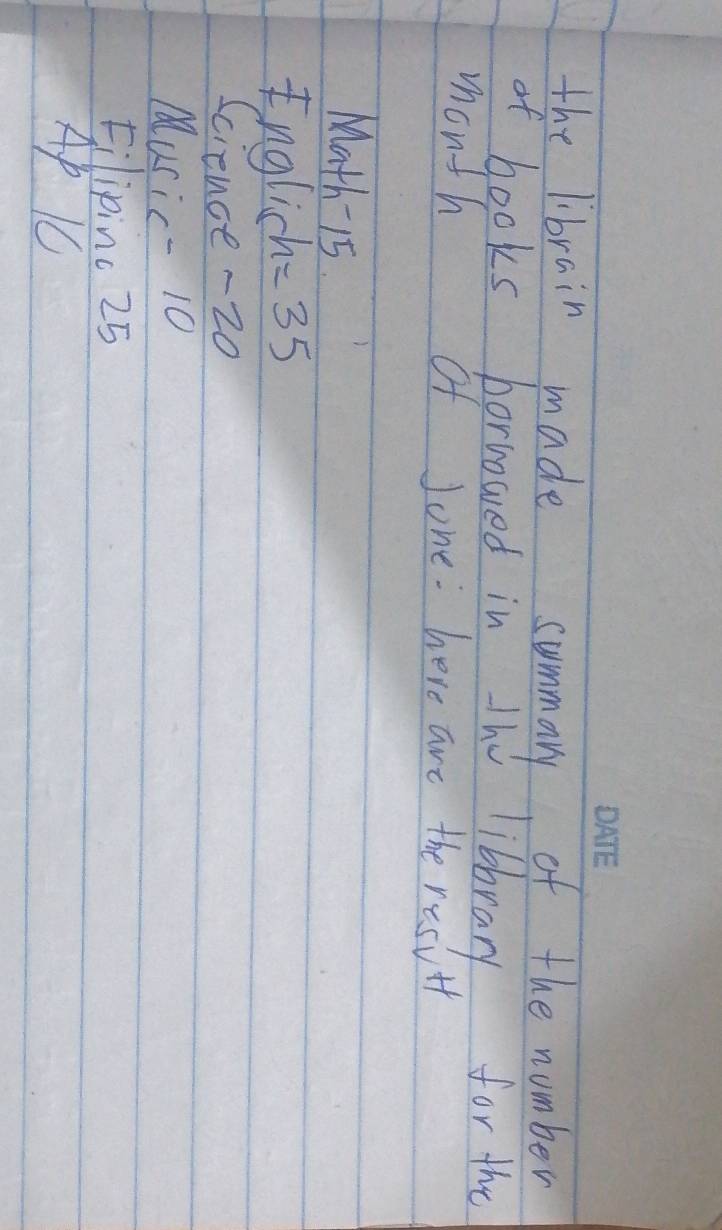 DATE
the librain made summary of the number
of books borrowed in the library for the
month of June: here are the result
Math-15
English=35
Science-20
Music-10
Filipino 25
Ap